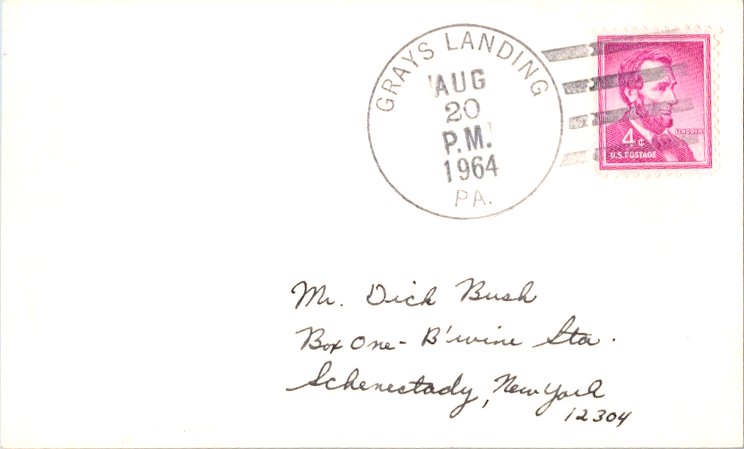 GRAYS LANDING
AUG
20
P.M.
1964
PA.
LINCOLN
4¢
U.S. POSTAGE
Mr. Dick Bush
Box One - B'wine Sta.
Schenectady, New York
12304